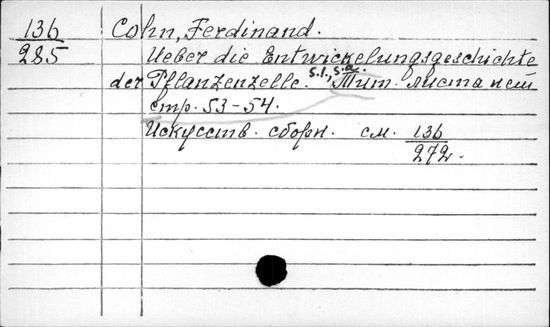 136 Cohn, Ferdinand.
285 Ueber die Entwickelungsgeschichte
der Pflanzenzelle. s.l., s.a. Тит. листа нет
стр. 53-54.
Искусств. сборн. см. 136
272.